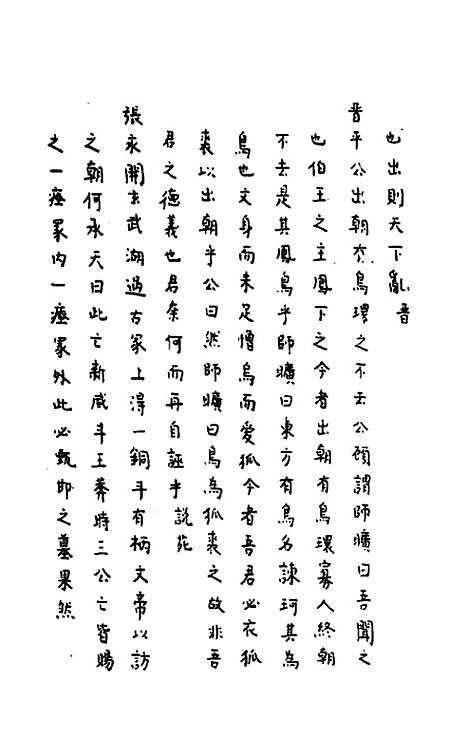 也出則天下亂晋
晋平公出朝有鳥環之不去公顧謂師曠曰吾聞之
也伯王之主鳳下之今者出朝有鳥環寡人終朝
不去是其鳳鳥乎師曠曰東方有鳥名諫珂其為
鳥也文身而朱足憎鳥而愛狐今者吾君必衣狐
裘以出朝乎公曰然師曠曰鳥為狐裘之故非吾
君之德義也君奈何而再自誣乎 說苑
張永開玄武湖過古冢上得一銅斗有柄文帝以訪
之朝何承天曰此亡新威斗王莽時三公亡皆賜
之一瘞冢內一瘞冢外此必甄邯之墓果然